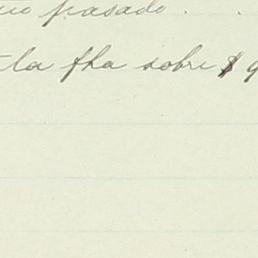 pasado.
la fha sobre $